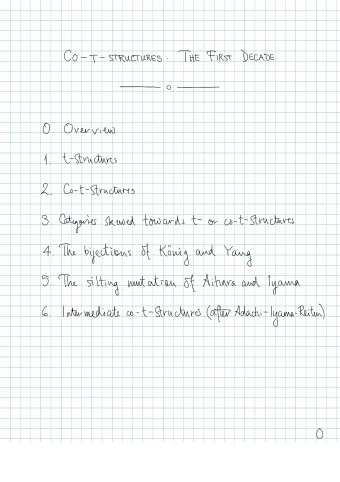 CO-T-STRUCTURES: THE FIRST DECADE
0. Overview
1. t-Structures
2. Co-t-Structures
3. Categories skewed towards t- or co-t-Structures
4. The bijections of König and Yang
5. The silting mutation of Aihara and Iyama
6. Intermediate co-t-Structures (after Adachi-Iyama-Reiten)
0